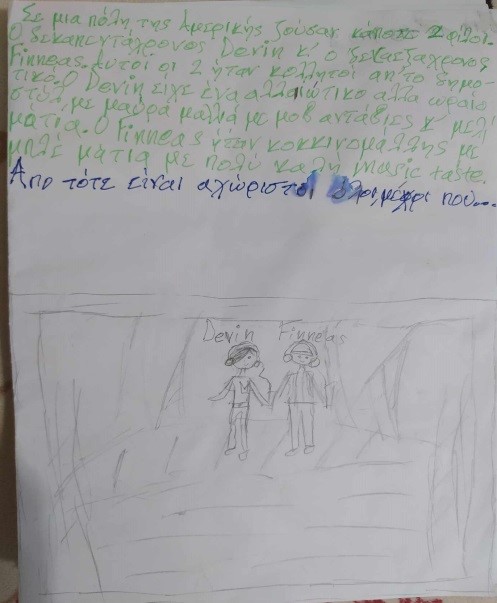 Σε μια πόλη της Αμερικής ζούσαν κάποτε 2 φίλοι.
Ο δεκαπεντάχρονος Devin κ' ο δεκαεξάχρονος
Finneas. Αυτοί οι 2 ήταν κολλητοί απ' το δημο-
τικό. Ο Devin είχε ένα αλλαιώτικο αλλα ωραίο
στύλ, με μαύρα μαλλιά με μοβ ανταύιες κ' μελί
μάτια. Ο Finneas ήταν κοκκινομάλλης με
μπλε μάτια με πολύ καλή music taste.
Απο τότε είναι αχώριστοι φίλοι, μέχρι που...
Devin Finneas